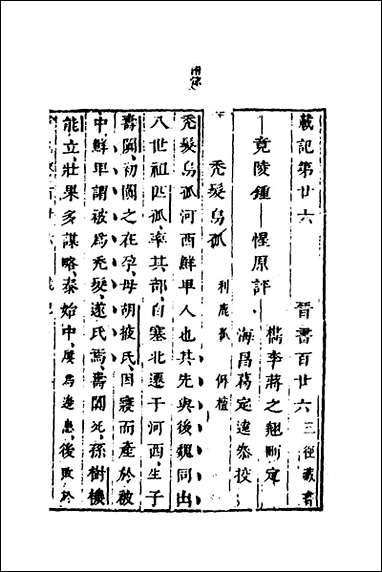 載記第廿六　晉書百廿六　三徑藏書
竟陵鍾惺原評
檇李蔣之翹刪定
海昌葛定遠叅校
禿髮烏孤　利鹿孤　傉檀
禿髮烏孤河西鮮卑人也其先與後魏同出
八世祖匹孤率其部自塞北遷于河西生子
壽闐初闐之在孕母胡掖氏因寢而產於被
中鮮卑謂被爲禿髮遂氏焉壽闐死孫樹機
能立壯果多謀略泰始中屢爲邊患後敗於